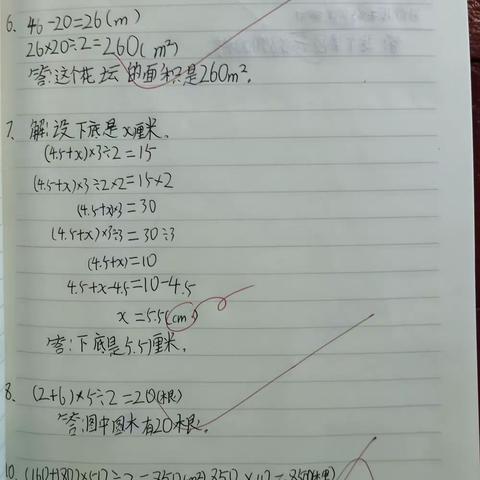 6、46-20=26(m)
26×20÷2=260(m²)
答:这个花坛的面积是260m²。
7、解:设下底是x厘米。
(4.5+x)×3÷2=15
(4.5+x)×3÷2×2=15×2
(4.5+x)×3=30
(4.5+x)×3÷3=30÷3
(4.5+x)=10
4.5+x-4.5=10-4.5
x=5.5(cm)
答:下底是5.5厘米。
8、(2+6)×5÷2=20(根)
答:图中圆木有20根。
10、(160+180)×50÷2=